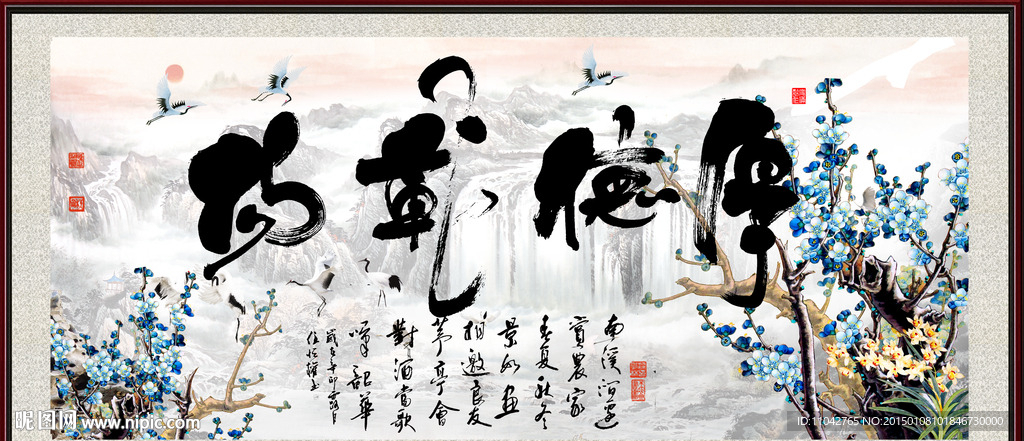 厚德載物
南溪河边
賞農家
春夏秋冬
景如画
相邀良友
茅亭會
對酒當歌
嘆韶華
歲在辛卯
昵图网 www.nipic.com
ID:11042765 NO:20150108101846730000